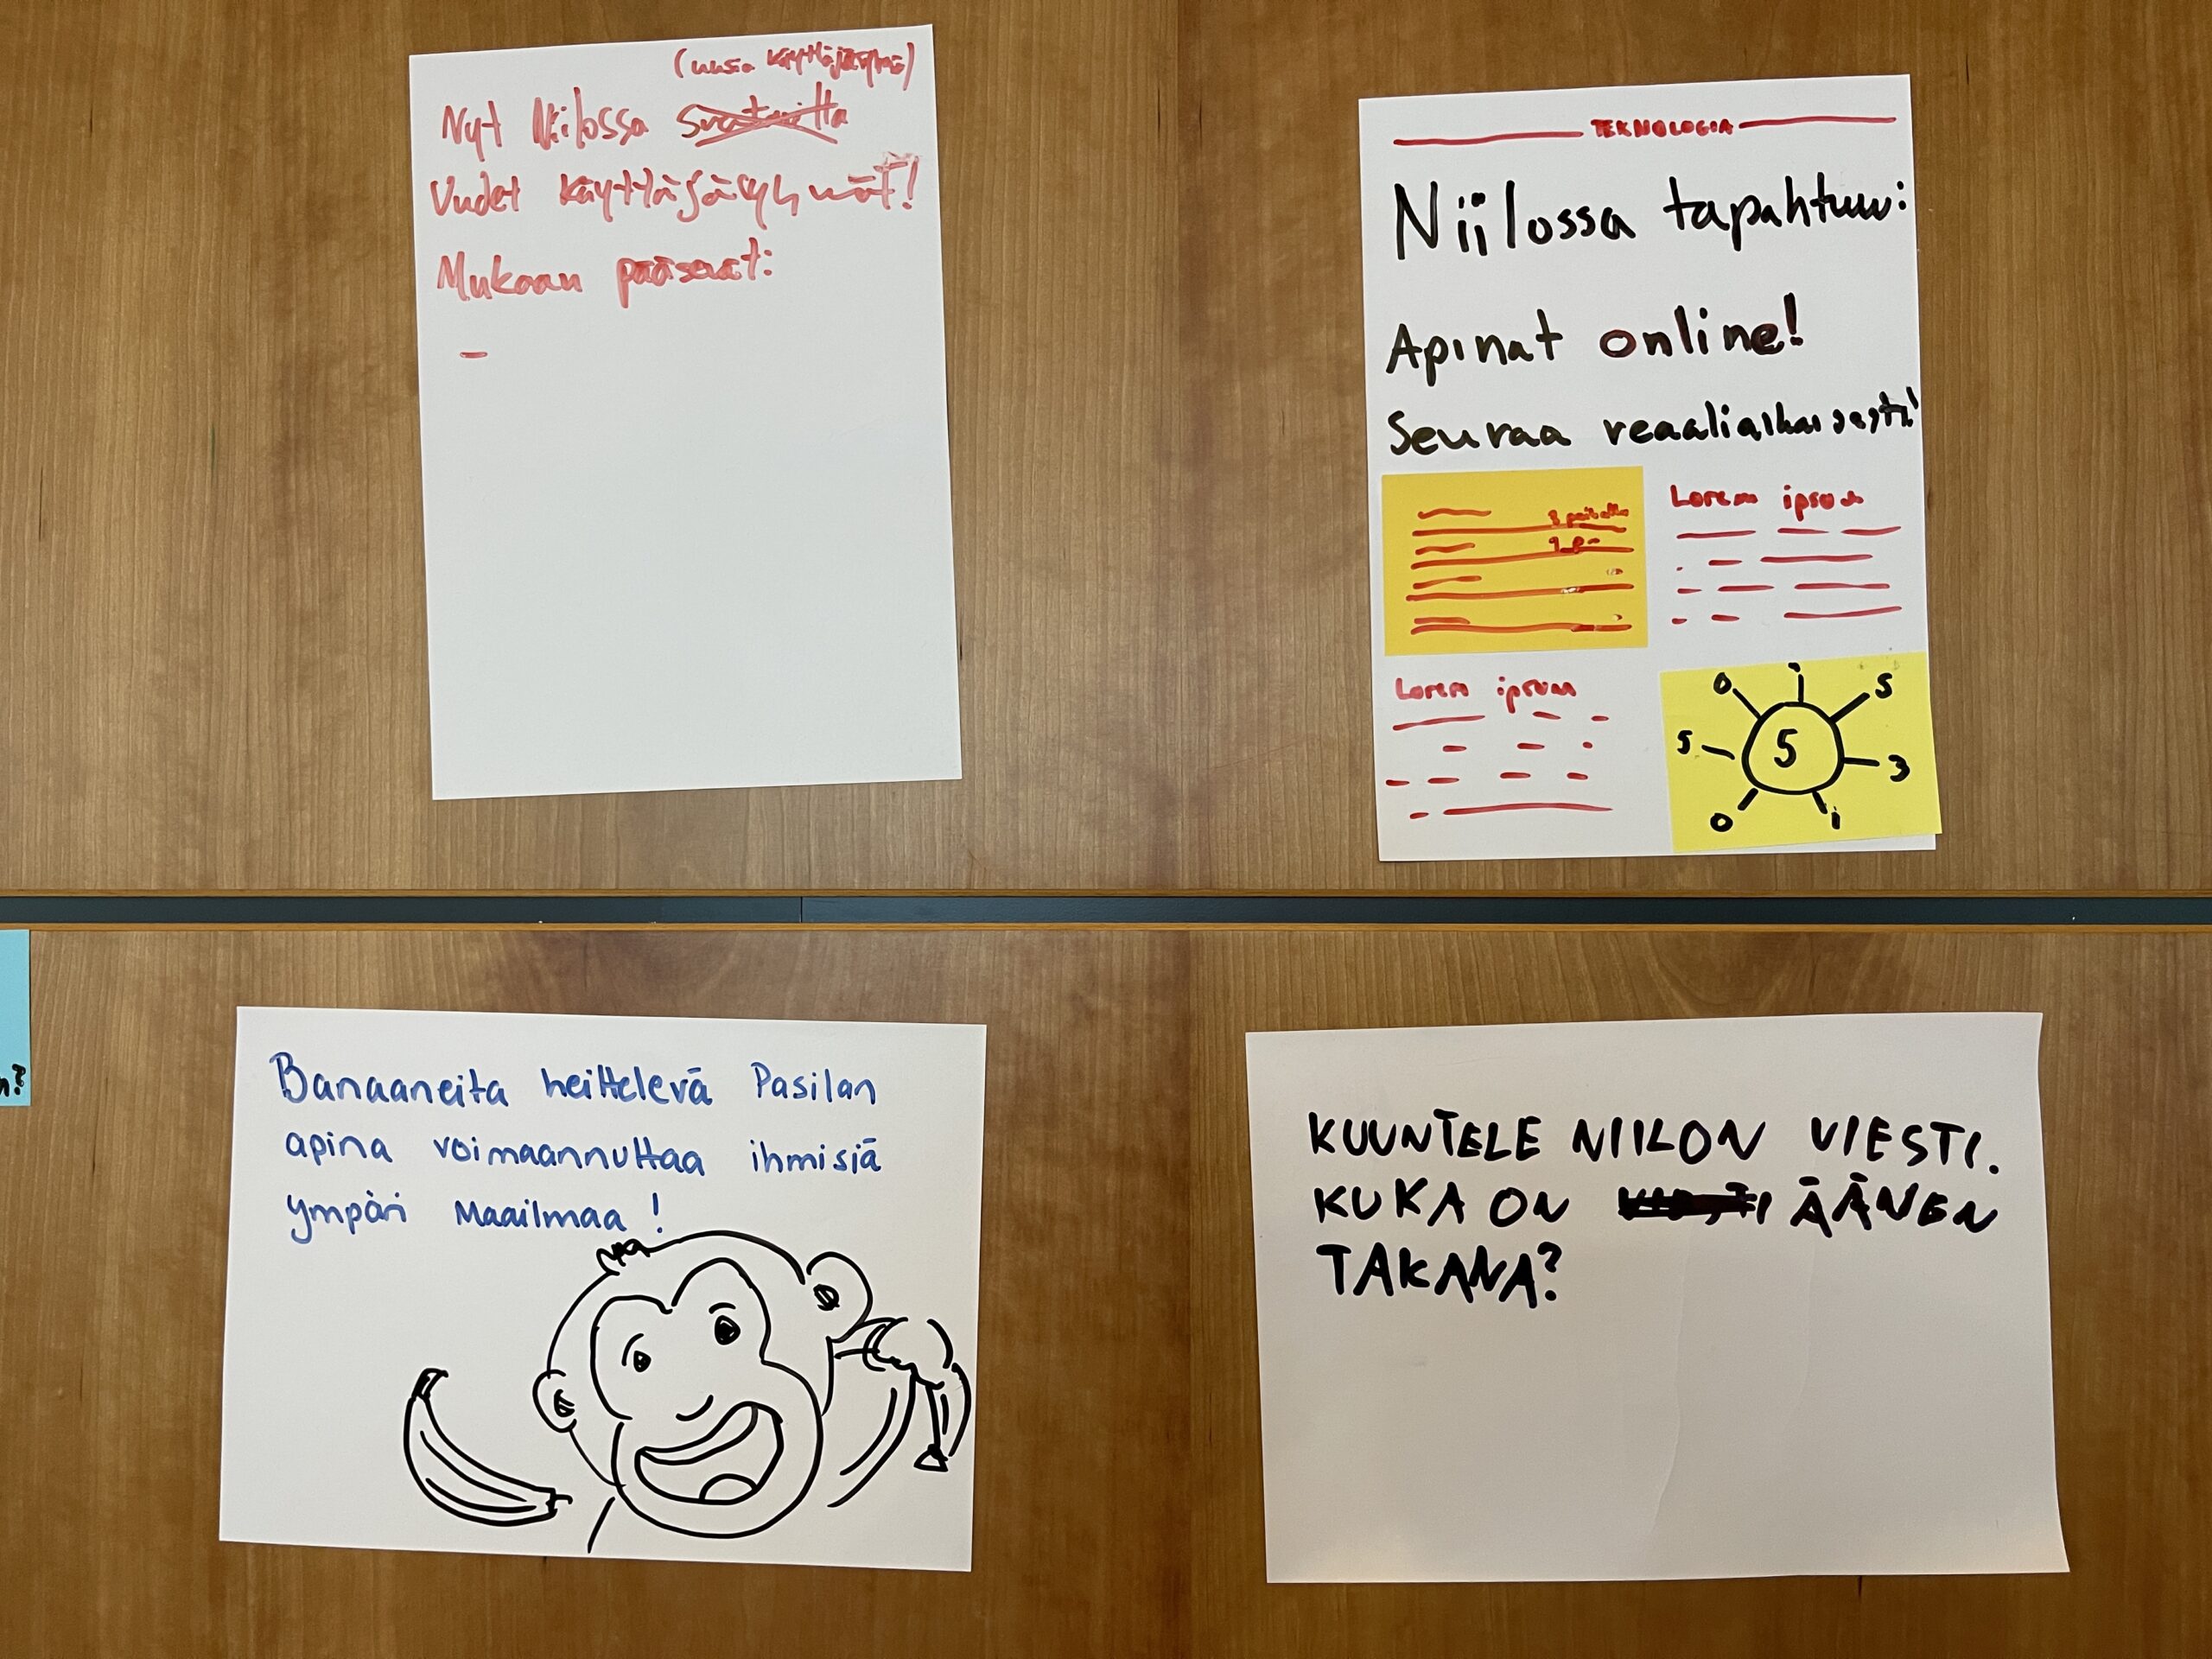 (uusia käyttäjäryhmä)
Nyt Niilossa
Uudet käyttäjäryhmät!
Mukaan pääsevät:
-
TEKNOLOGIA
Niilossa tapahtuu:
Apinat online!
Seuraa reaaliaikaisesti!
8 paikalla
Lorem ipsum
Lorem ipsum
0 i 5
5 5 3
0 i
n?
Banaaneita heittelevä Pasilan
apina voimaannuttaa ihmisiä
ympäri Maailmaa!
KUUNTELE NIILON VIESTI.
KUKA ON ÄÄNEN
TAKANA?